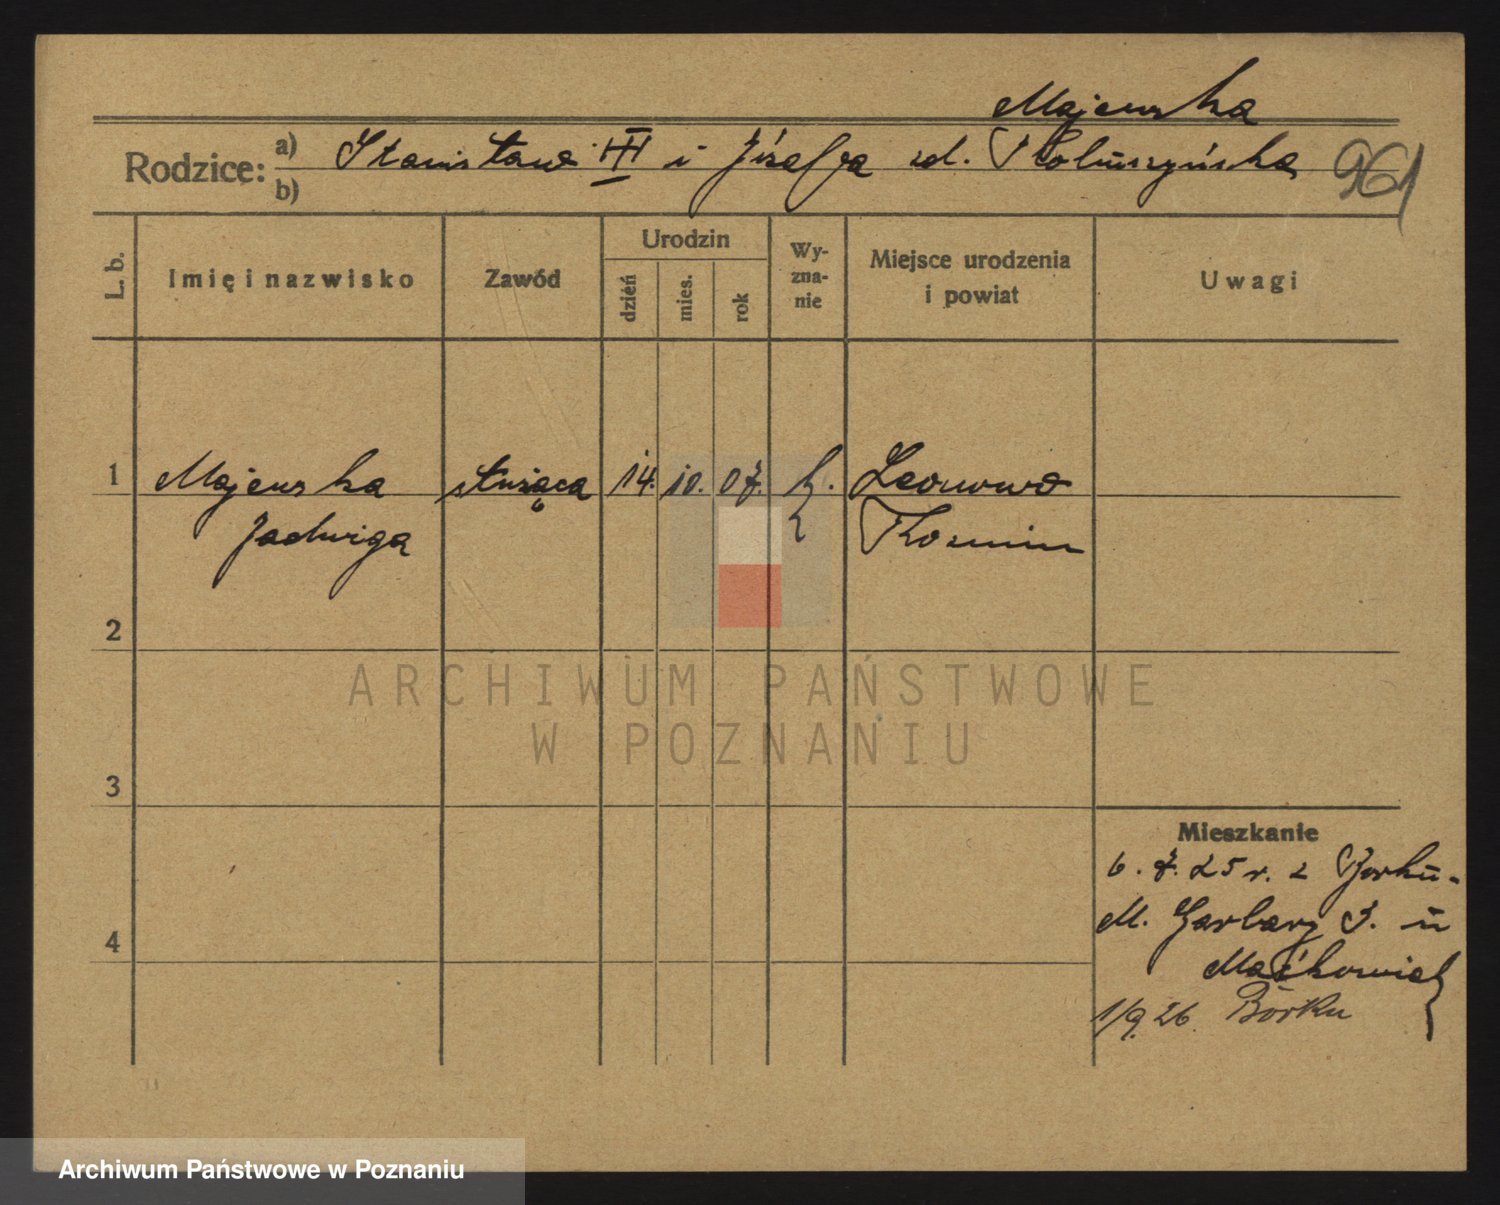 Majewska
Rodzice: a) Stanisław III i Józefa zd. Koluszyńska 961
b)
L. b. Imię i nazwisko Zawód Urodzin dzień mies. rok Wy-zna-nie Miejsce urodzenia i powiat Uwagi
1 Majewska służąca 14. 10. 07. k. Leonowo
Jadwiga Kozmin
2
ARCHIWUM PAŃSTWOWE
W POZNANIU
3
Mieszkanie
6. 7. 25 r. z Borku-
4 M. Garbary 7. u
Maćkowiak
1/9. 26 Borku
Archiwum Państwowe w Poznaniu